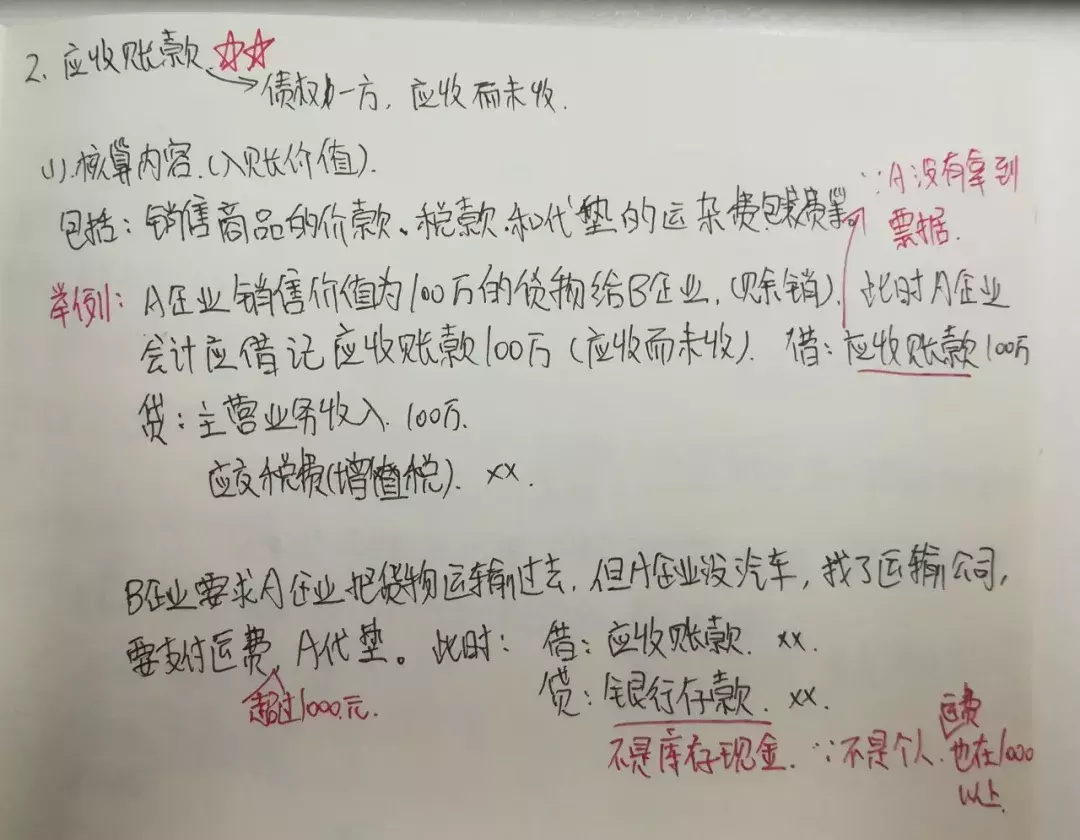 2、应收账款 ☆☆
→债权一方，应收而未收．
(1).核算内容.(入账价值).
包括：销售商品的价款、税款、和代垫的运杂费包装费等
∵A没有拿到
票据．
举例：A企业销售价值为100万的货物给B企业，(赊销)．此时A企业
会计应借记应收账款100万（应收而未收）．借：应收账款100万
贷：主营业务收入．100万．
应交税费(增值税)．xx．
B企业要求A企业把货物运输过去，但A企业没汽车，找了运输公司，
要支付运费，A代垫。此时：借：应收账款．xx．
超过1000元．
贷：银行存款．xx．
不是库存现金．∵不是个人．运费也在1000
以上．